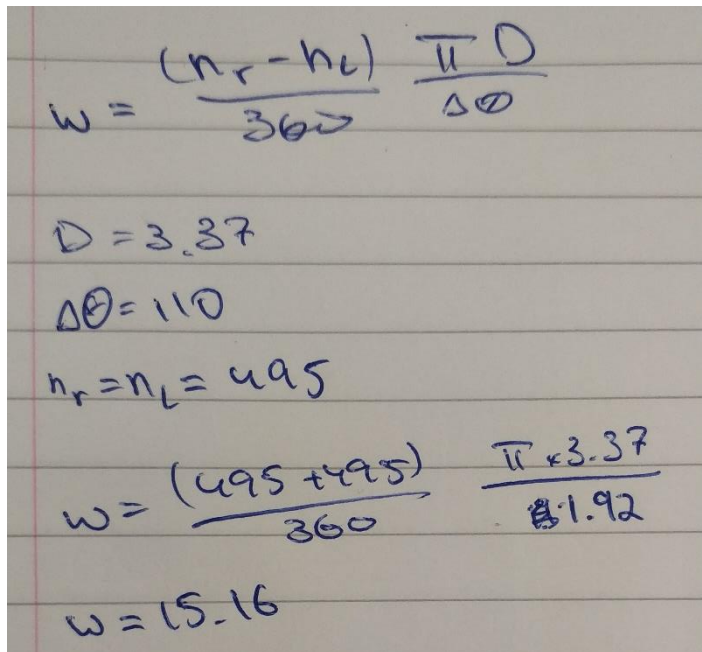 w = (n_r - n_L)/360 πD/Δθ
D = 3.37
Δθ = 110
n_r = n_L = 495
w = (495 + 495)/360 π × 3.37/1.92
w = 15.16